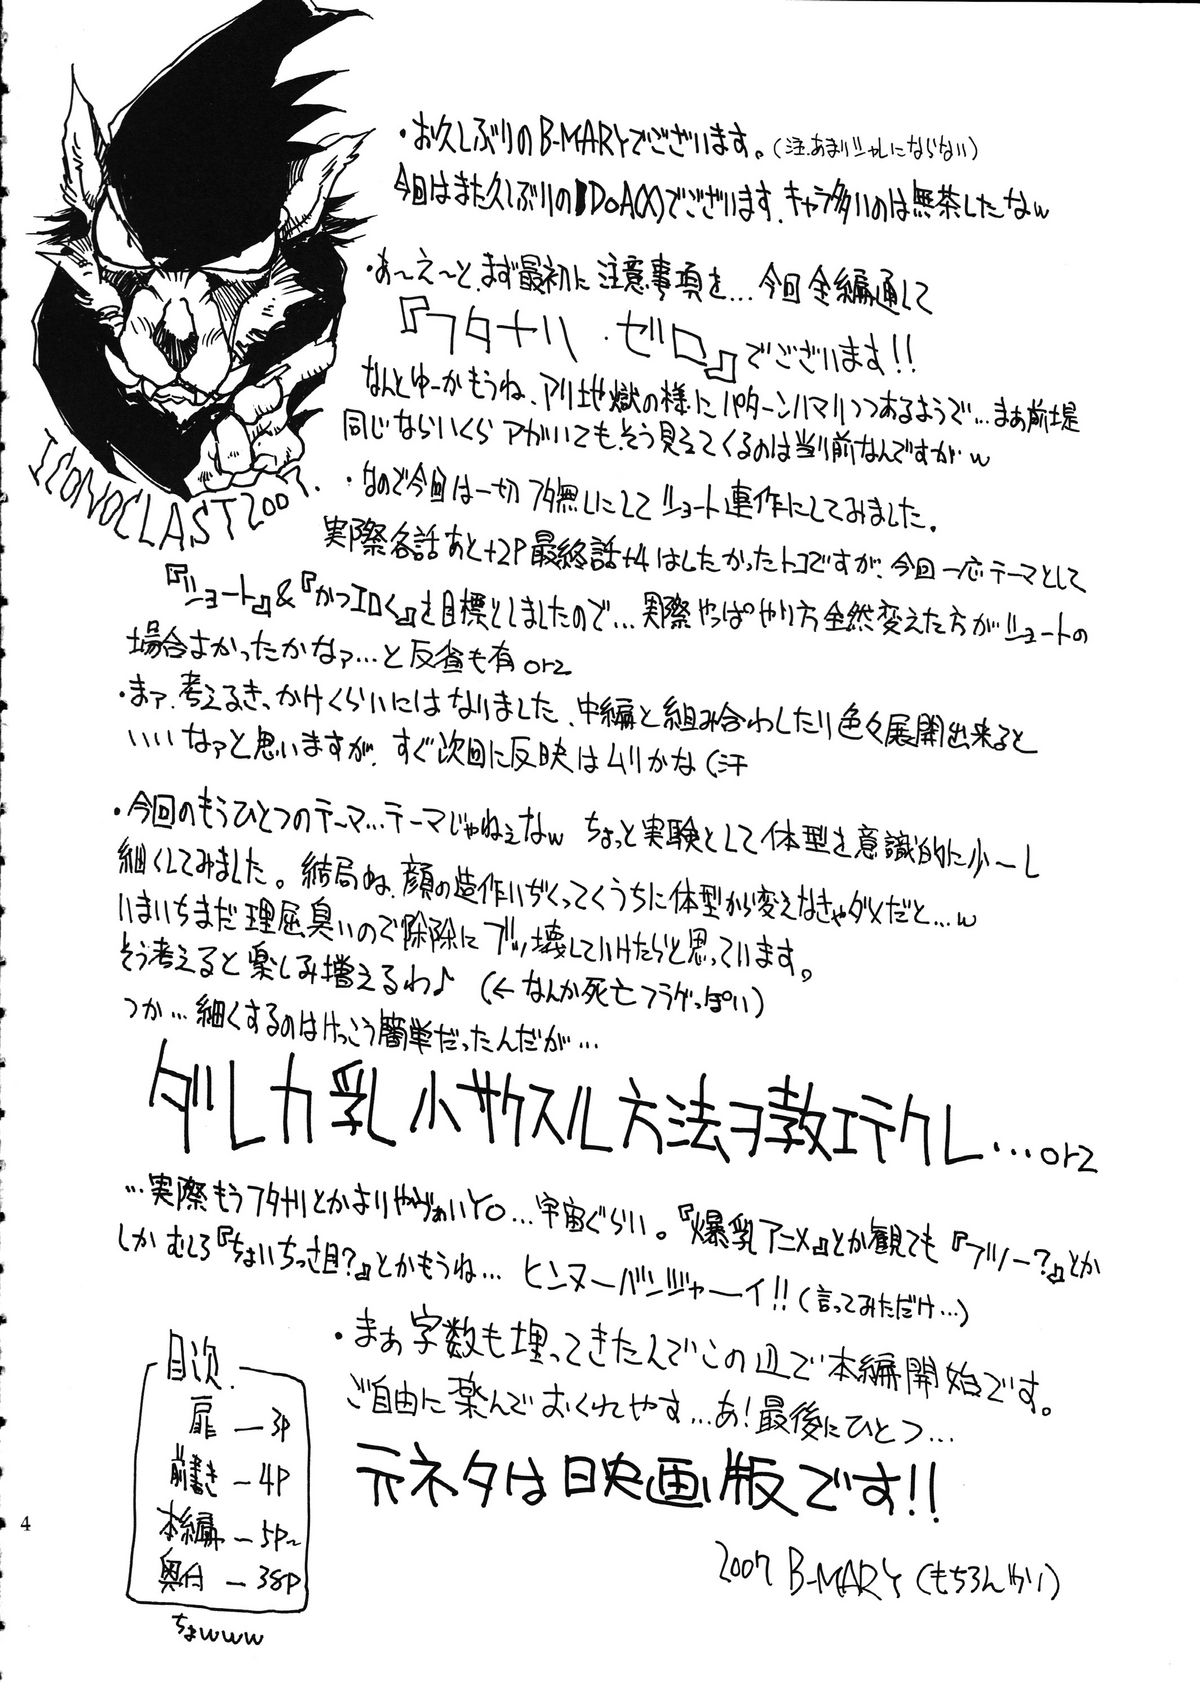 ・お久しぶりのB-MARYでございます。(注.あまりシャレにならない)
今回はまた久しぶりのDoA(X)でございます、キャラ多いのは無茶したなw
・あ〜え〜と、まず最初に注意事項を…今回全編通して
『フタナリ・ゼロ』でございます!!
なんとゆーかもうね、アリ地獄の様にパターンハマりつつあるようで…まあ前堤
同じならいくらアがいても、そう見えてくるのは当り前なんですがw
・なので今回は一切フタ無しにしてショート連作にしてみました。
実際各話あと+2P最終話+4はしたかったトコですが、今回一応テーマとして
『ショート』&『かつエロく』を目標としましたので…実際やっぱやり方全然変えた方がショートの
場合よかったかなァ…と反省も有orz
・まァ、考えるきっかけくらいにはなりました、中編と組み合わしたり色々展開出来ると
いいなァと思いますが、すぐ次回に反映はムリかな(汗
・今回のもうひとつのテーマ…テーマじゃねぇなw ちょっと実験として体型を意識的に少〜し
細くしてみました。結局ね、顔の造作いぢくってくうちに体型から変えなきゃダメだと…w
いまいちまだ理屈臭いので除除にブッ壊していけたらと思っています。
そう考えると楽しみ増えるわ♪ (←なんか死亡フラグっぽい)
つか…細くするのはけっこう簡単だったんだが…
ダレカ乳小サクスル方法ヲ教エテクレ…orz
…実際もうフタナリとかよりやヴぁいYO…宇宙ぐらい。『爆乳アニメ』とか観ても『フツー?』とか
しかむしろ『ちょいちっさ目?』とかもうね… ヒンヌーバンジャーイ!!(言ってみただけ…)
・まぁ字数も埋ってきたんでこの辺で本編開始です。
ご自由に楽んでおくれやす…あ!最後にひとつ…
元ネタは日映画版です!!
2007 B-MARY (もちろんかり)
ICONOCLAST2007.
目次
扉 — 3P
前書き — 4P
本編 — 5P~
奥付 — 38P
ちょwww
4